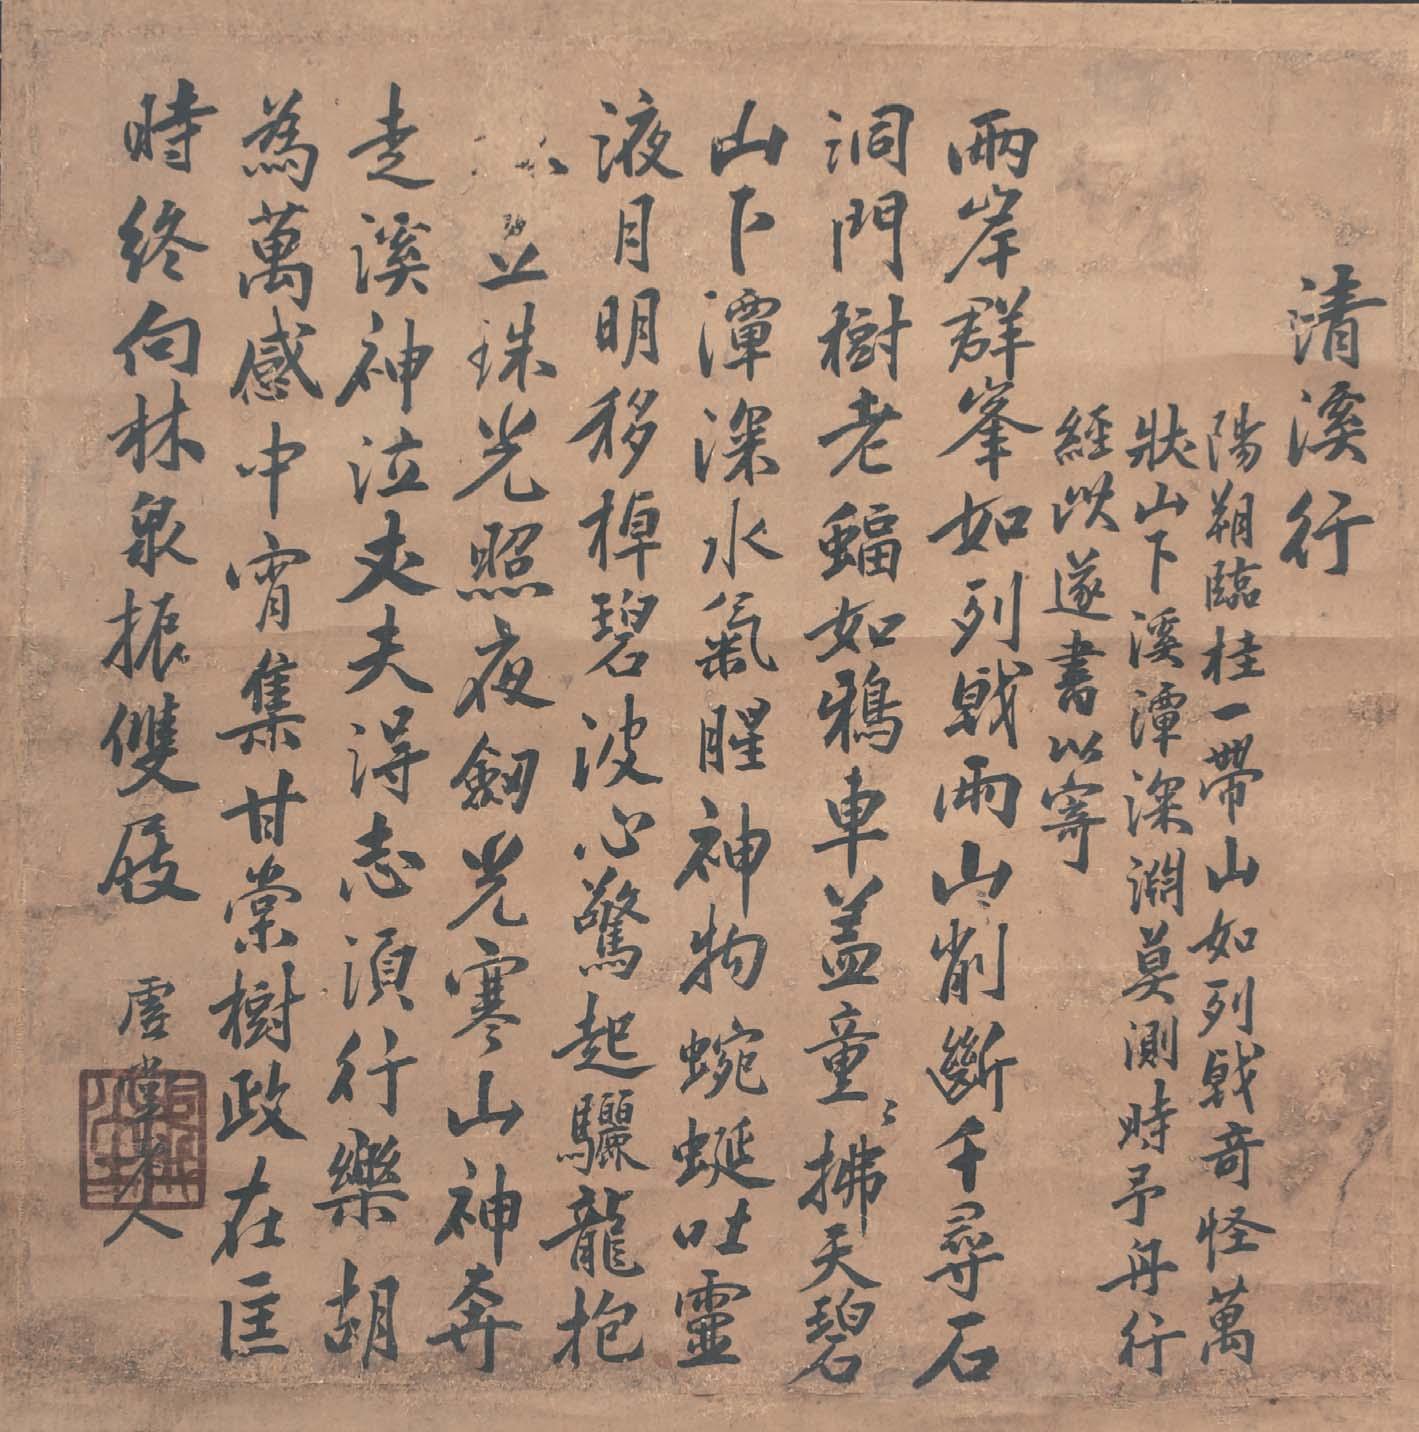 清溪行
陽朔臨桂一帶山如列戟奇怪萬
狀山下溪潭深淵莫測時予舟行
經此遂書以寄
兩岸群峯如列戟兩山削斷千尋石
洞門樹老蝠如鴉車蓋童〻拂天碧
山下潭深水氣腥神物蜿蜒吐靈
液月明移棹碧波心驚起驪龍抱
立珠光照夜劒光寒山神奔
走溪神泣丈夫得志須行樂胡
為萬感中宵集甘棠樹政在匡
時終向林泉振雙屐
虛堂老人